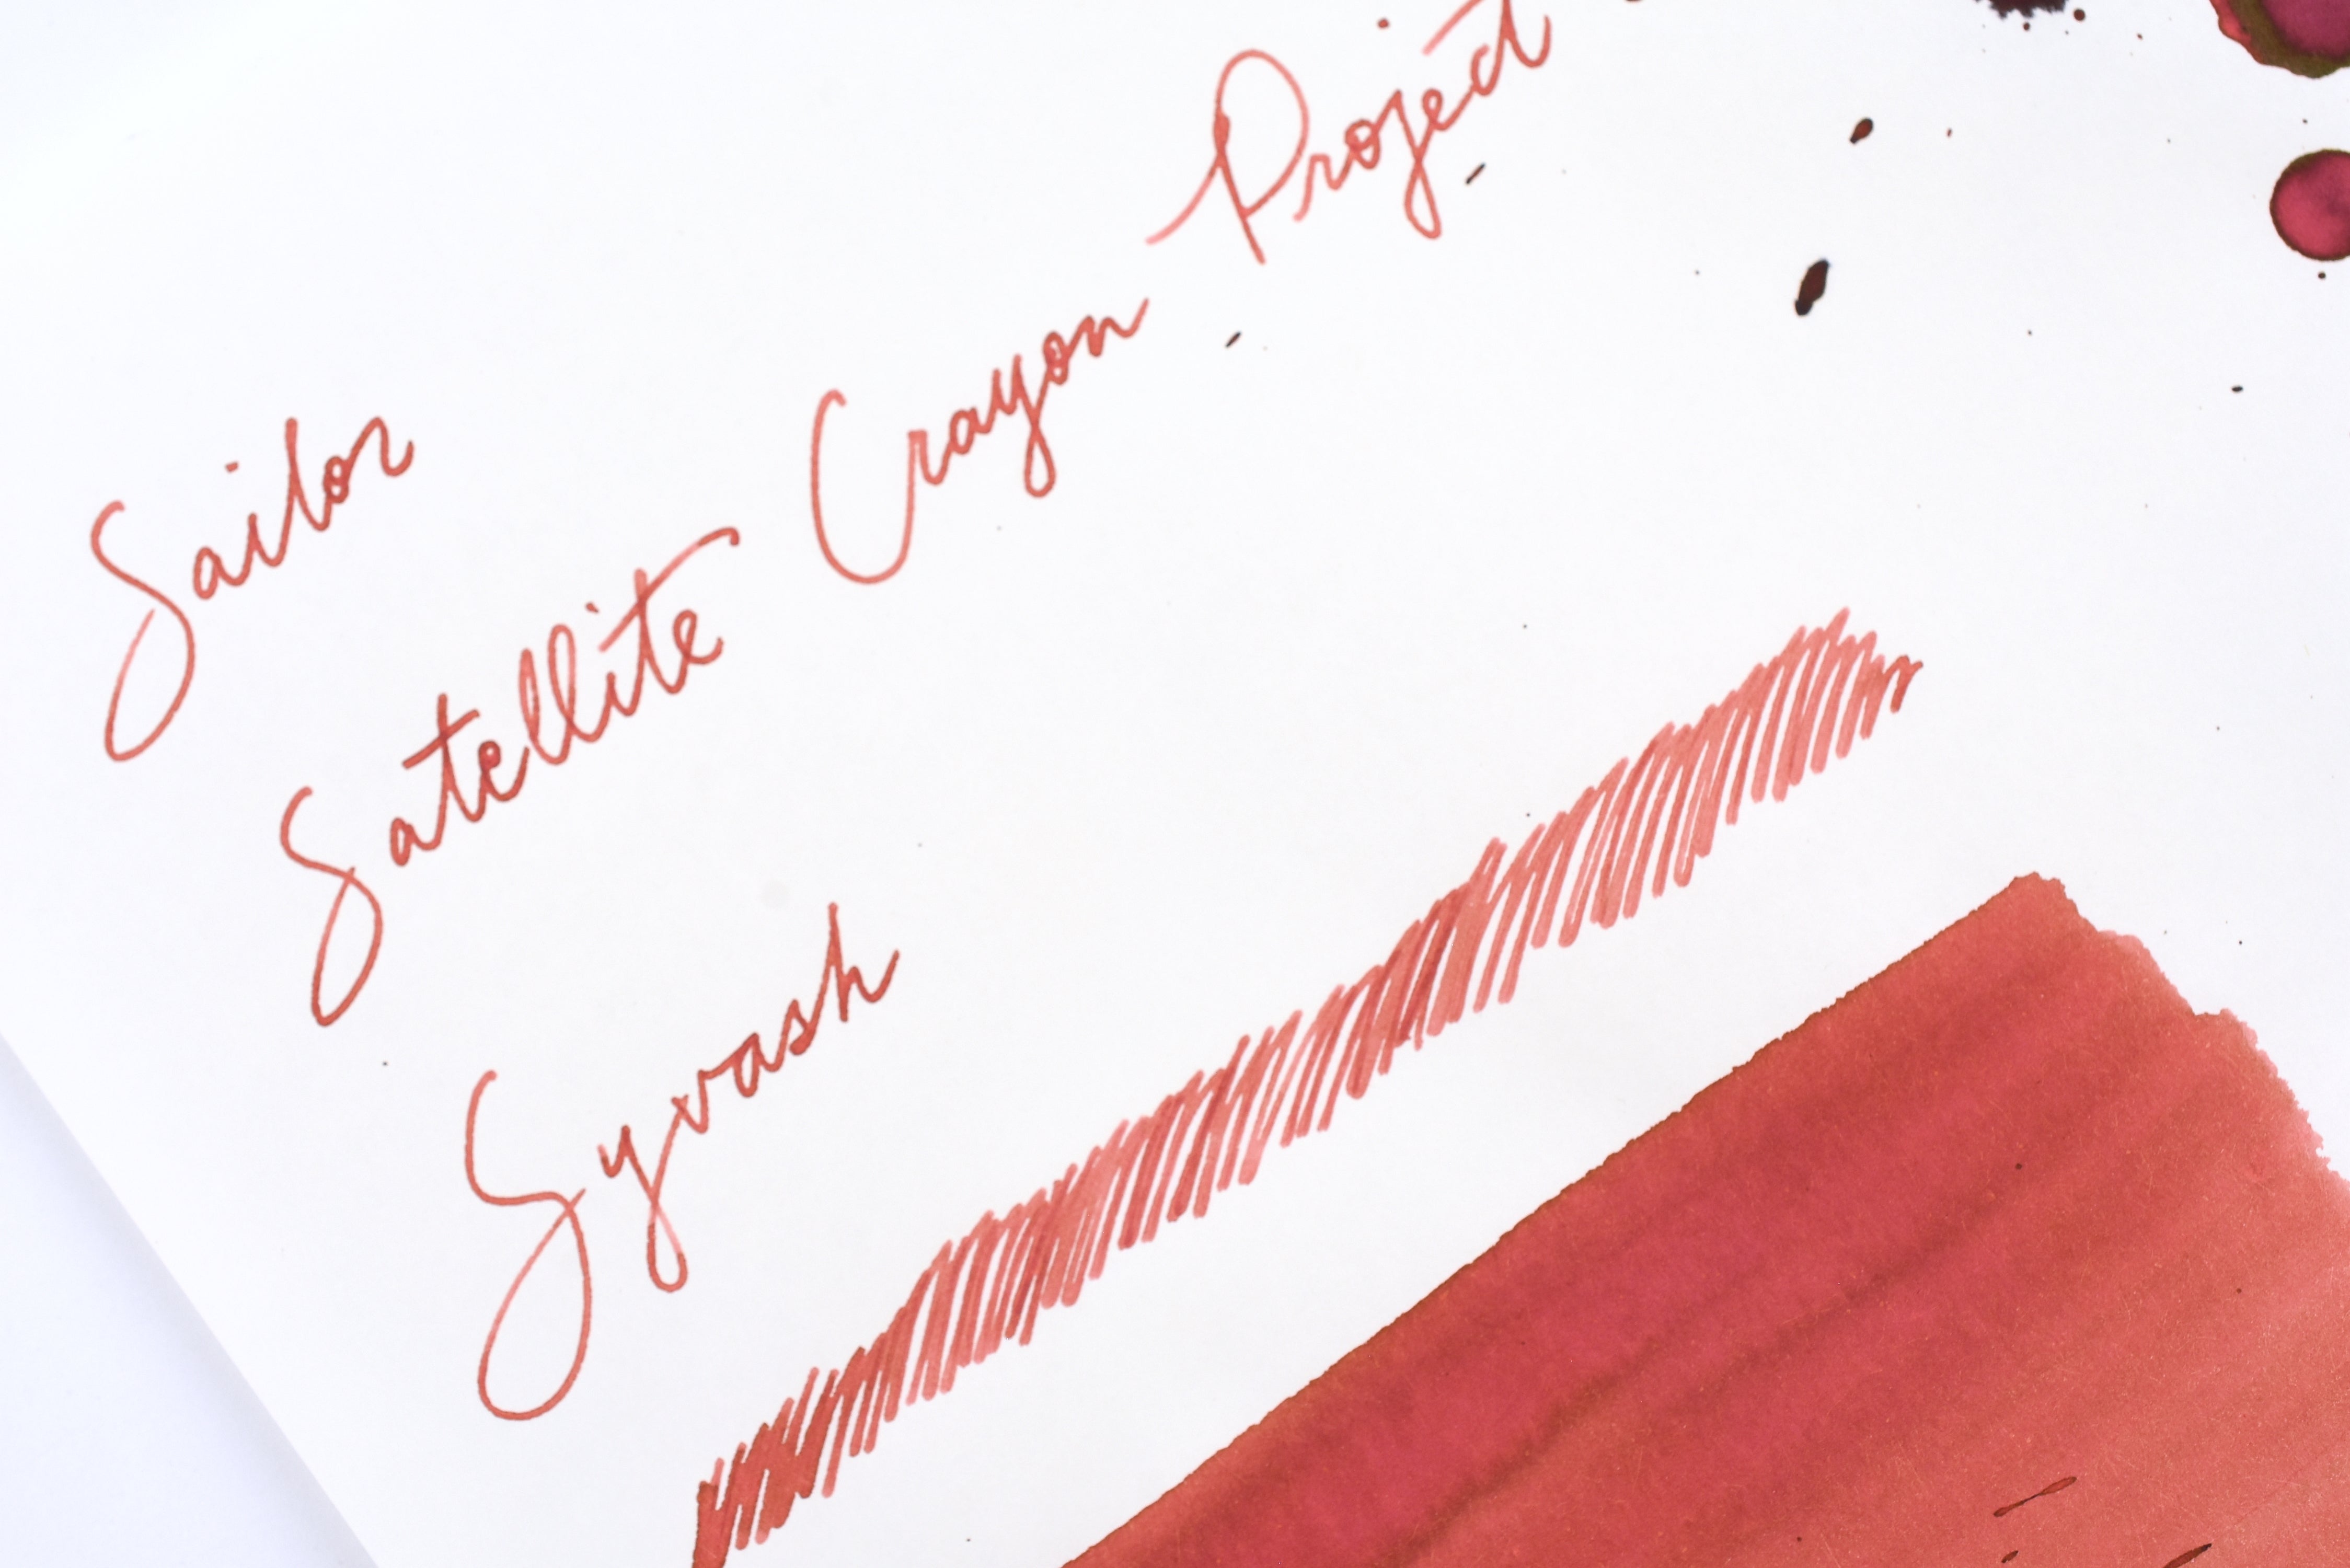 Sailor
Satellite Crayon Project
Syvash